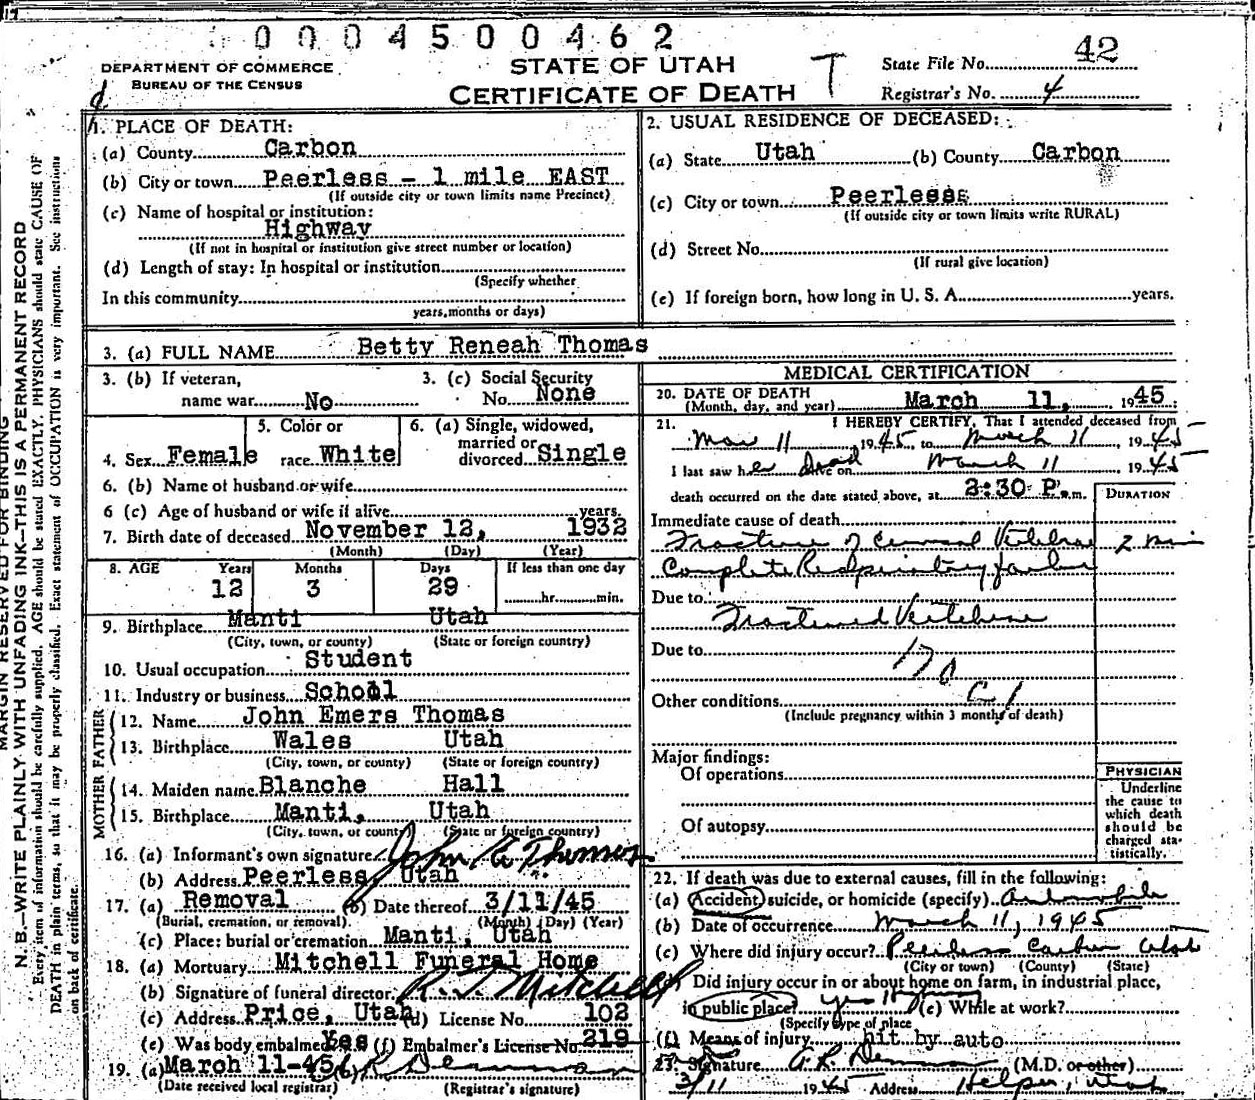 0004500462
DEPARTMENT OF COMMERCE
BUREAU OF THE CENSUS
STATE OF UTAH
CERTIFICATE OF DEATH
T
State File No. 42
Registrar's No. 4
MARGIN RESERVED FOR BINDING
N. B.—WRITE PLAINLY WITH UNFADING INK—THIS IS A PERMANENT RECORD
Every item of information should be carefully supplied. AGE should be stated EXACTLY. PHYSICIANS should state CAUSE OF
DEATH in plain terms, so that it may be properly classified. Exact statement of OCCUPATION is very important. See instructions
on back of certificate.
1. PLACE OF DEATH:
(a) County Carbon
(b) City or town Peerless - 1 mile EAST
(If outside city or town limits name Precinct)
(c) Name of hospital or institution:
Highway
(If not in hospital or institution give street number or location)
(d) Length of stay: In hospital or institution
(Specify whether
In this community
years, months or days)
2. USUAL RESIDENCE OF DECEASED:
(a) State Utah (b) County Carbon
(c) City or town Peerless
(If outside city or town limits write RURAL)
(d) Street No.
(If rural give location)
(e) If foreign born, how long in U. S. A. years.
3. (a) FULL NAME Betty Reneah Thomas
3. (b) If veteran,
name war No
3. (c) Social Security
No. None
4. Sex Female
5. Color or
race White
6. (a) Single, widowed,
married or
divorced Single
6. (b) Name of husband or wife
6 (c) Age of husband or wife if alive years.
7. Birth date of deceased November 12, 1932
(Month) (Day) (Year)
8. AGE Years Months Days If less than one day
12 3 29 hr. min.
9. Birthplace Manti Utah
(City, town, or county) (State or foreign country)
10. Usual occupation Student
11. Industry or business School
FATHER
12. Name John Emers Thomas
13. Birthplace Wales Utah
(City, town, or county) (State or foreign country)
MOTHER
14. Maiden name Blanche Hall
15. Birthplace Manti, Utah
(City, town, or county) (State or foreign country)
16. (a) Informant's own signature John E Thomas
(b) Address Peerless, Utah
17. (a) Removal (b) Date thereof 3/11/45
(Burial, cremation, or removal). (Month) (Day) (Year)
(c) Place: burial or cremation Manti, Utah
18. (a) Mortuary Mitchell Funeral Home
(b) Signature of funeral director R. T. Mitchell
(c) Address Price, Utah (d) License No. 102
(e) Was body embalmed Yes (f) Embalmer's License No. 219
19. (a) March 11-45 (b) R Demman
(Date received local registrar) (Registrar's signature)
MEDICAL CERTIFICATION
20. DATE OF DEATH
(Month, day, and year) March 11, 1945
21. I HEREBY CERTIFY, That I attended deceased from
Mar 11, 1945 to March 11 1945
I last saw her dead alive on March 11 1945
death occurred on the date stated above, at 2:30 P. m.
DURATION
Immediate cause of death
Fracture of Cervical Vertebrae 2 min
Complete Respiratory failure
Due to
Fractured Vertebrae
Due to
170
C1
Other conditions
(Include pregnancy within 3 months of death)
Major findings:
Of operations
Of autopsy
PHYSICIAN
Underline
the cause to
which death
should be
charged sta-
tistically.
22. If death was due to external causes, fill in the following:
(a) Accident, suicide, or homicide (specify) Automobile
(b) Date of occurrence March 11, 1945
(c) Where did injury occur? Peerless Carbon Utah
(City or town) (County) (State)
Did injury occur in or about home on farm, in industrial place,
in public place? yes Highway (e) While at work?
(Specify type of place
(f) Means of injury hit by auto
23. Signature A. R. Demman (M.D. or other)
3/11 1945 Address Helper, Utah